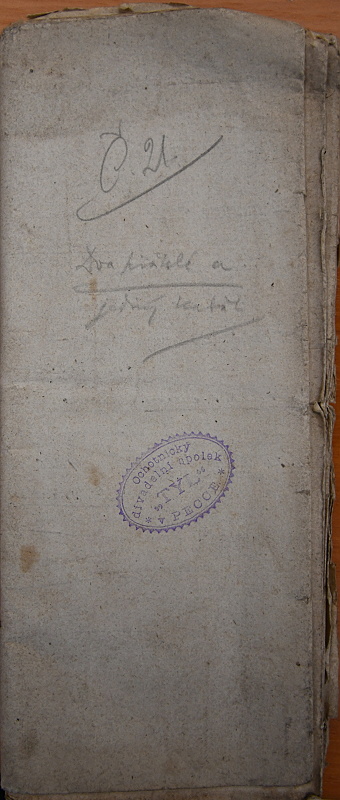 Č. 21.
Dva přátelé a
jediný kabát
Ochotnický
divadelní spolek
"TYL"
v PECCE